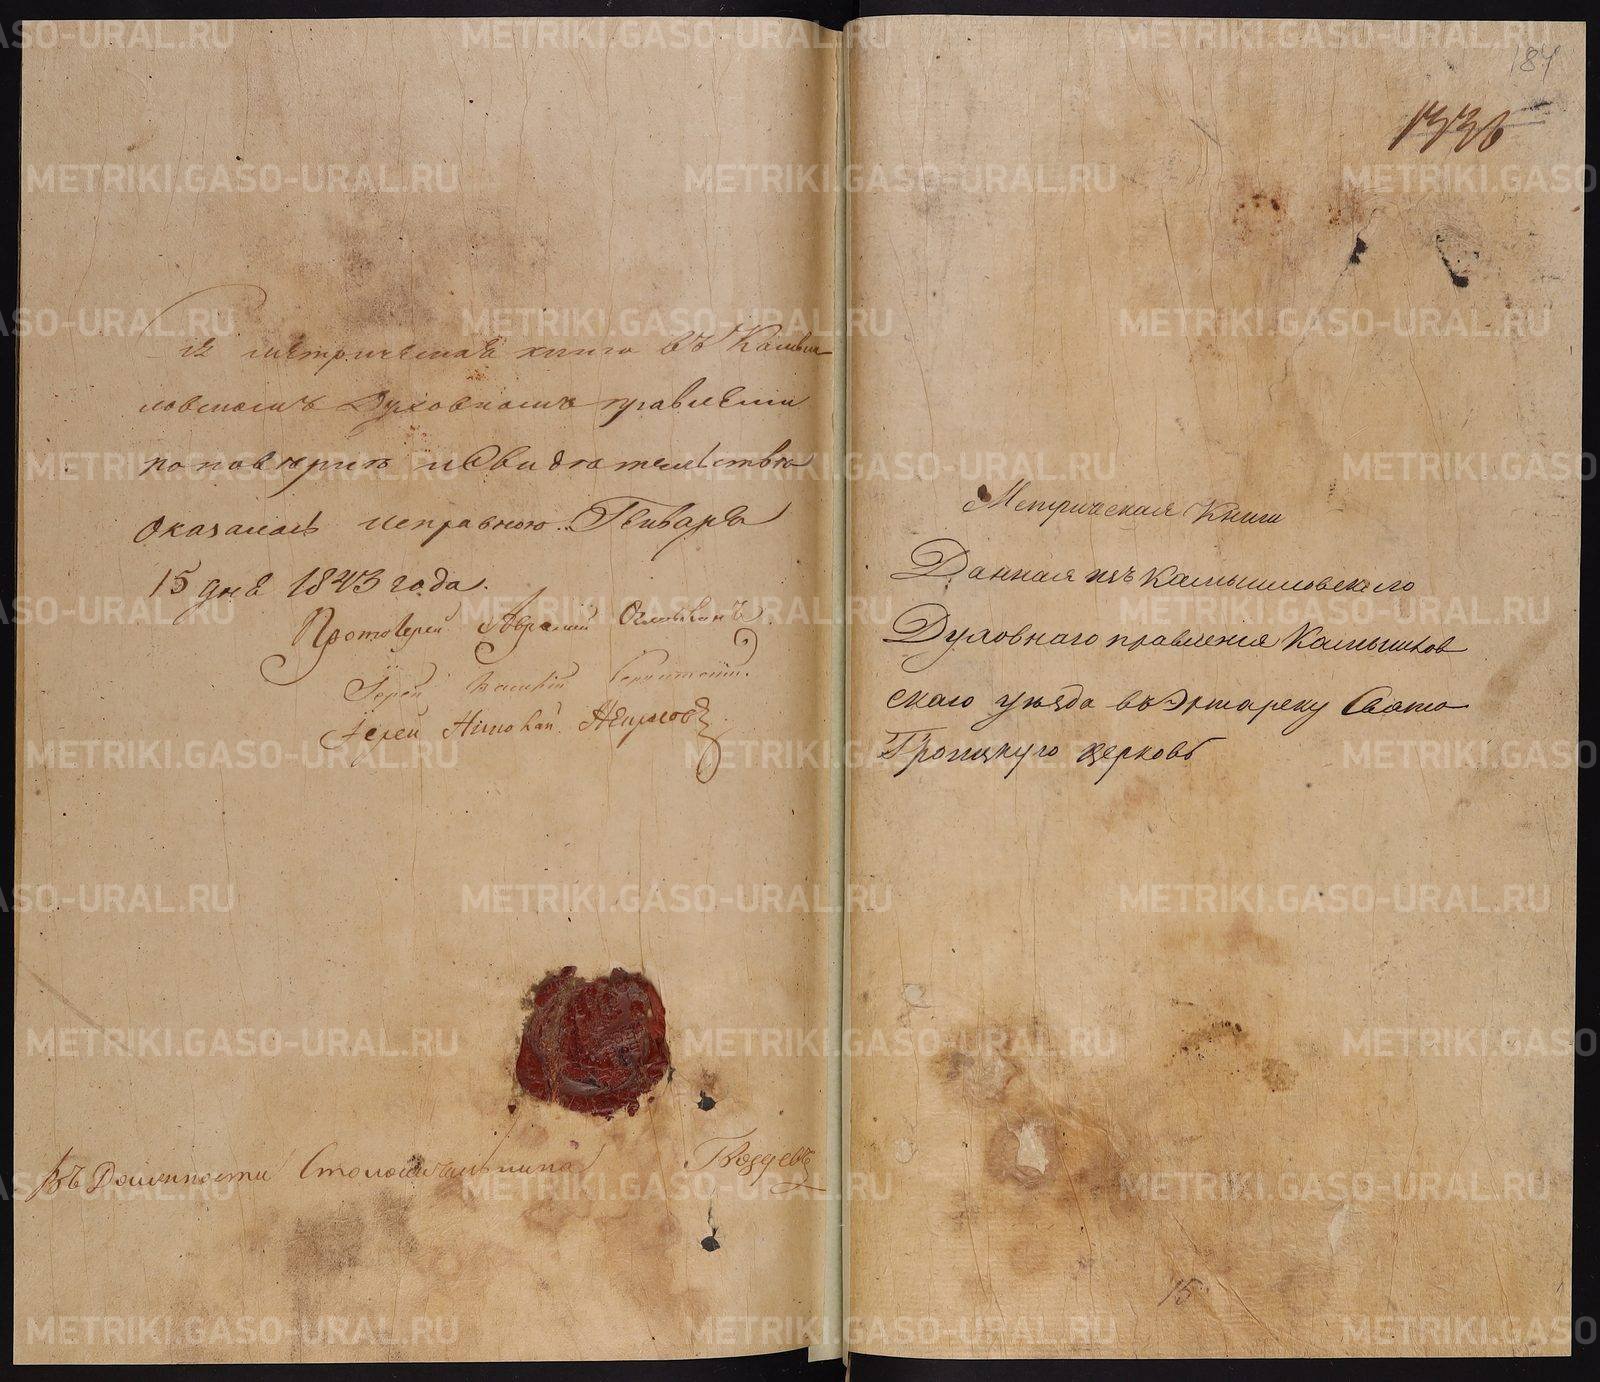 метрическая книга въ Камыш
ловскомъ Духовномъ правлении
по поверкѣ и Свидѣтельствѣ
оказалась исправною. Генваря
15 дня 1843 года.
Протоіерей
Іерей
Іерей Николай
въ Должности Столоначальника
184
1336
Метрическая Книга
Данная изъ Камышловскаго
Духовнаго правления Камышлов
скаго уѣзда въ Свято
Троицкую церковь
15